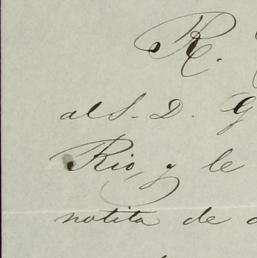 R.
al S. D. G
Rio, y le
notita de